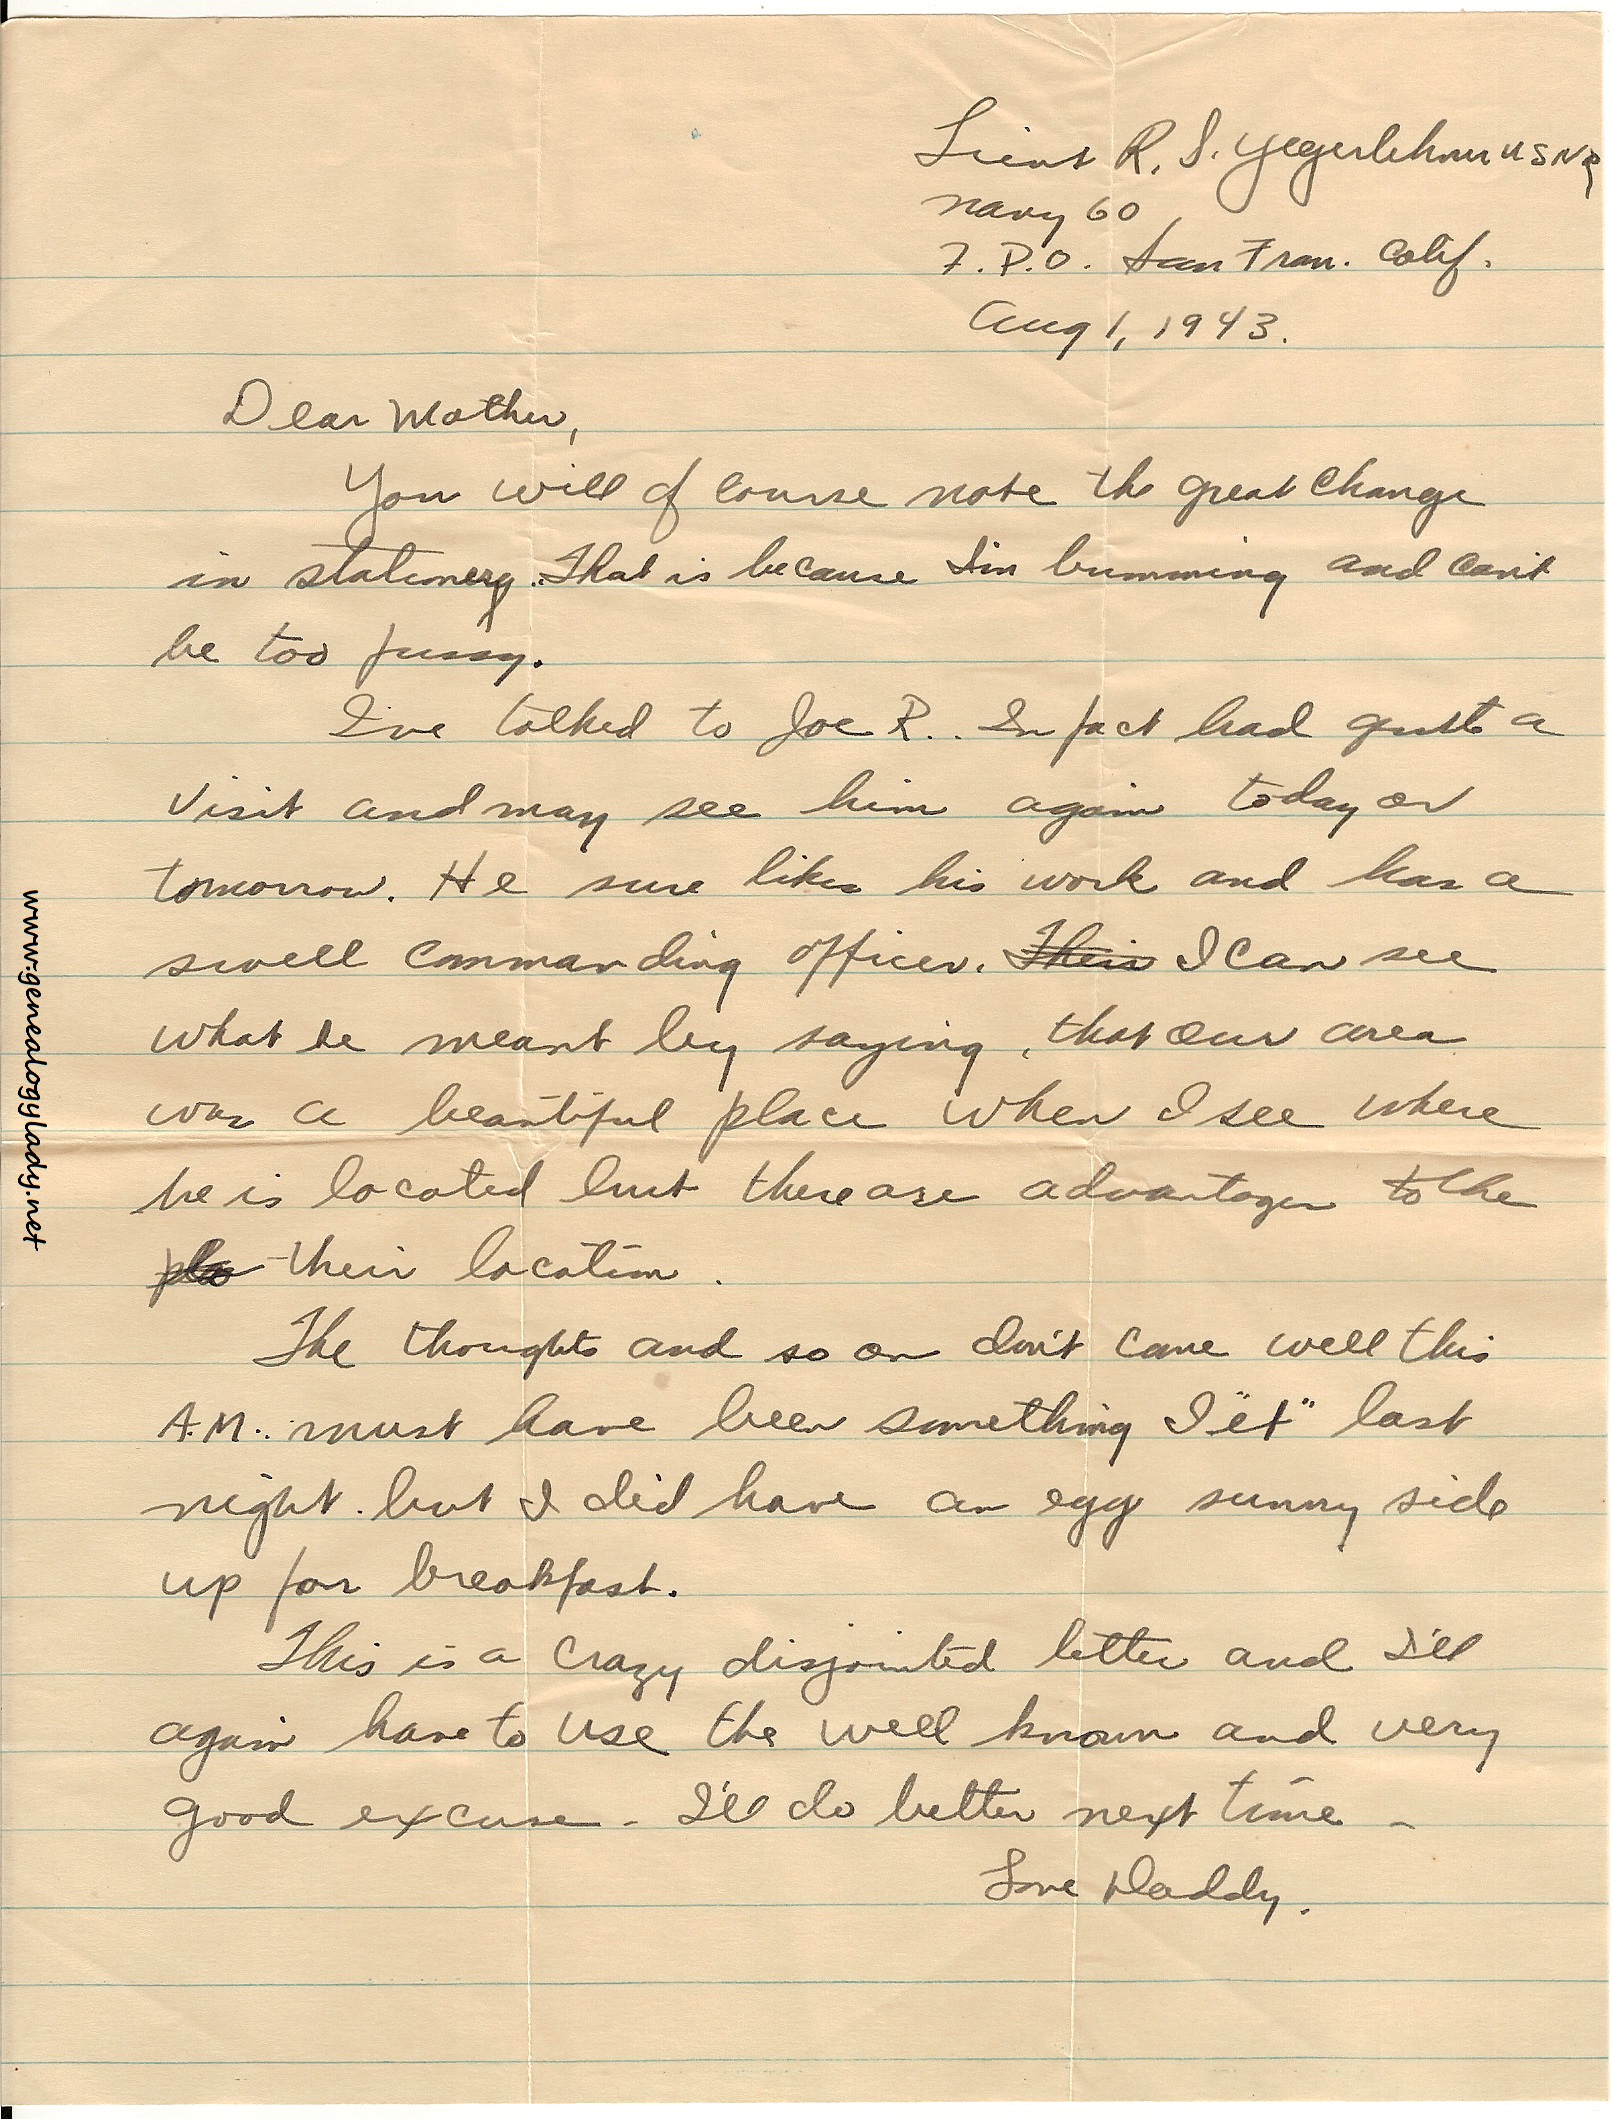 Lieut R. S. Yegerlehner USNR
Navy 60
F.P.O. San Fran. Calif.
Aug 1, 1943.
Dear Mother,
You will of course note the great change
in stationery. That is because I'm bumming and can't
be too fussy.
I've talked to Joe R.. In fact had quite a
visit and may see him again today or
tomorrow. He sure likes his work and has a
swell commanding officer. Their I can see
what he meant by saying, that our area
was a beautiful place when I see where
he is located but there are advantages to the
pla their location.
The thoughts and so on don't come well this
A.M.. must have been something I "et" last
night. but I did have an egg sunny side
up for breakfast.
This is a crazy disjointed letter and I'll
again have to use the well known and very
good excuse - I'll do better next time -
Love Daddy.
www.genealogylady.net